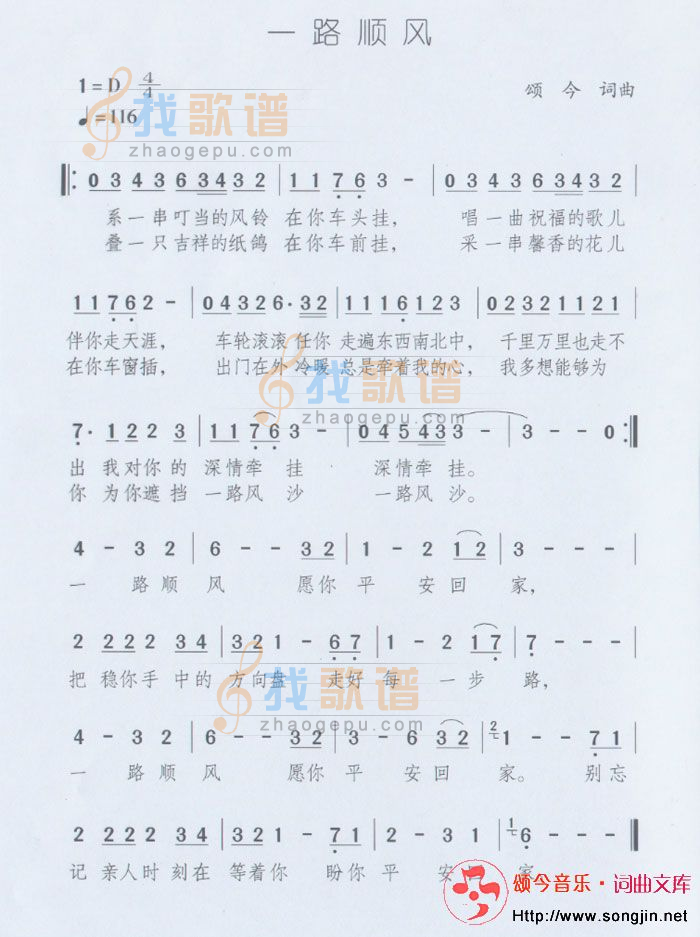 一路顺风
1=D 4/4
颂今 词曲
♩=116
找歌谱
zhaogepu.com
‖: 0 3 4 3 6 3 4 3 2 | 1 1 7 6 3 - | 0 3 4 3 6 3 4 3 2 |
系一串叮当的风铃 在你车头挂， 唱一曲祝福的歌儿
叠一只吉祥的纸鸽 在你车前挂， 采一串馨香的花儿
1 1 7 6 2 - | 0 4 3 2 6 · 3 2 | 1 1 1 6 1 2 3 | 0 2 3 2 1 1 2 1 |
伴你走天涯， 车轮滚滚 任你 走遍东西南北中， 千里万里也走不
在你车窗插， 出门在外 冷暖 总是牵着我的心， 我多想能够为
找歌谱
zhaogepu.com
7 · 1 2 2 3 | 1 1 7 6 3 - | 0 4 5 4 3 3 - | 3 - - 0 :‖
出 我对你的 深情牵挂 深情牵挂。
你 为你遮挡 一路风沙 一路风沙。
4 - 3 2 | 6 - - 3 2 | 1 - 2 1 2 | 3 - - - |
一 路顺 风 愿你 平 安回 家，
2 2 2 2 3 4 | 3 2 1 1 - 6 7 | 1 - 2 1 7 | 7 - - - |
把 稳你手中的 方向盘 走好 每 一步 路，
找歌谱
zhaogepu.com
4 - 3 2 | 6 - - 3 2 | 3 - 6 3 2 | 2 1 - - 7 1 |
一 路顺 风 愿你 平 安回 家。 别忘
2 2 2 2 3 4 | 3 2 1 - 7 1 | 2 - 3 1 | 1 6 - - - ‖
记 亲人时刻在 等着你 盼你 平 安回 家
颂今音乐·词曲文库
Http://www.songjin.net